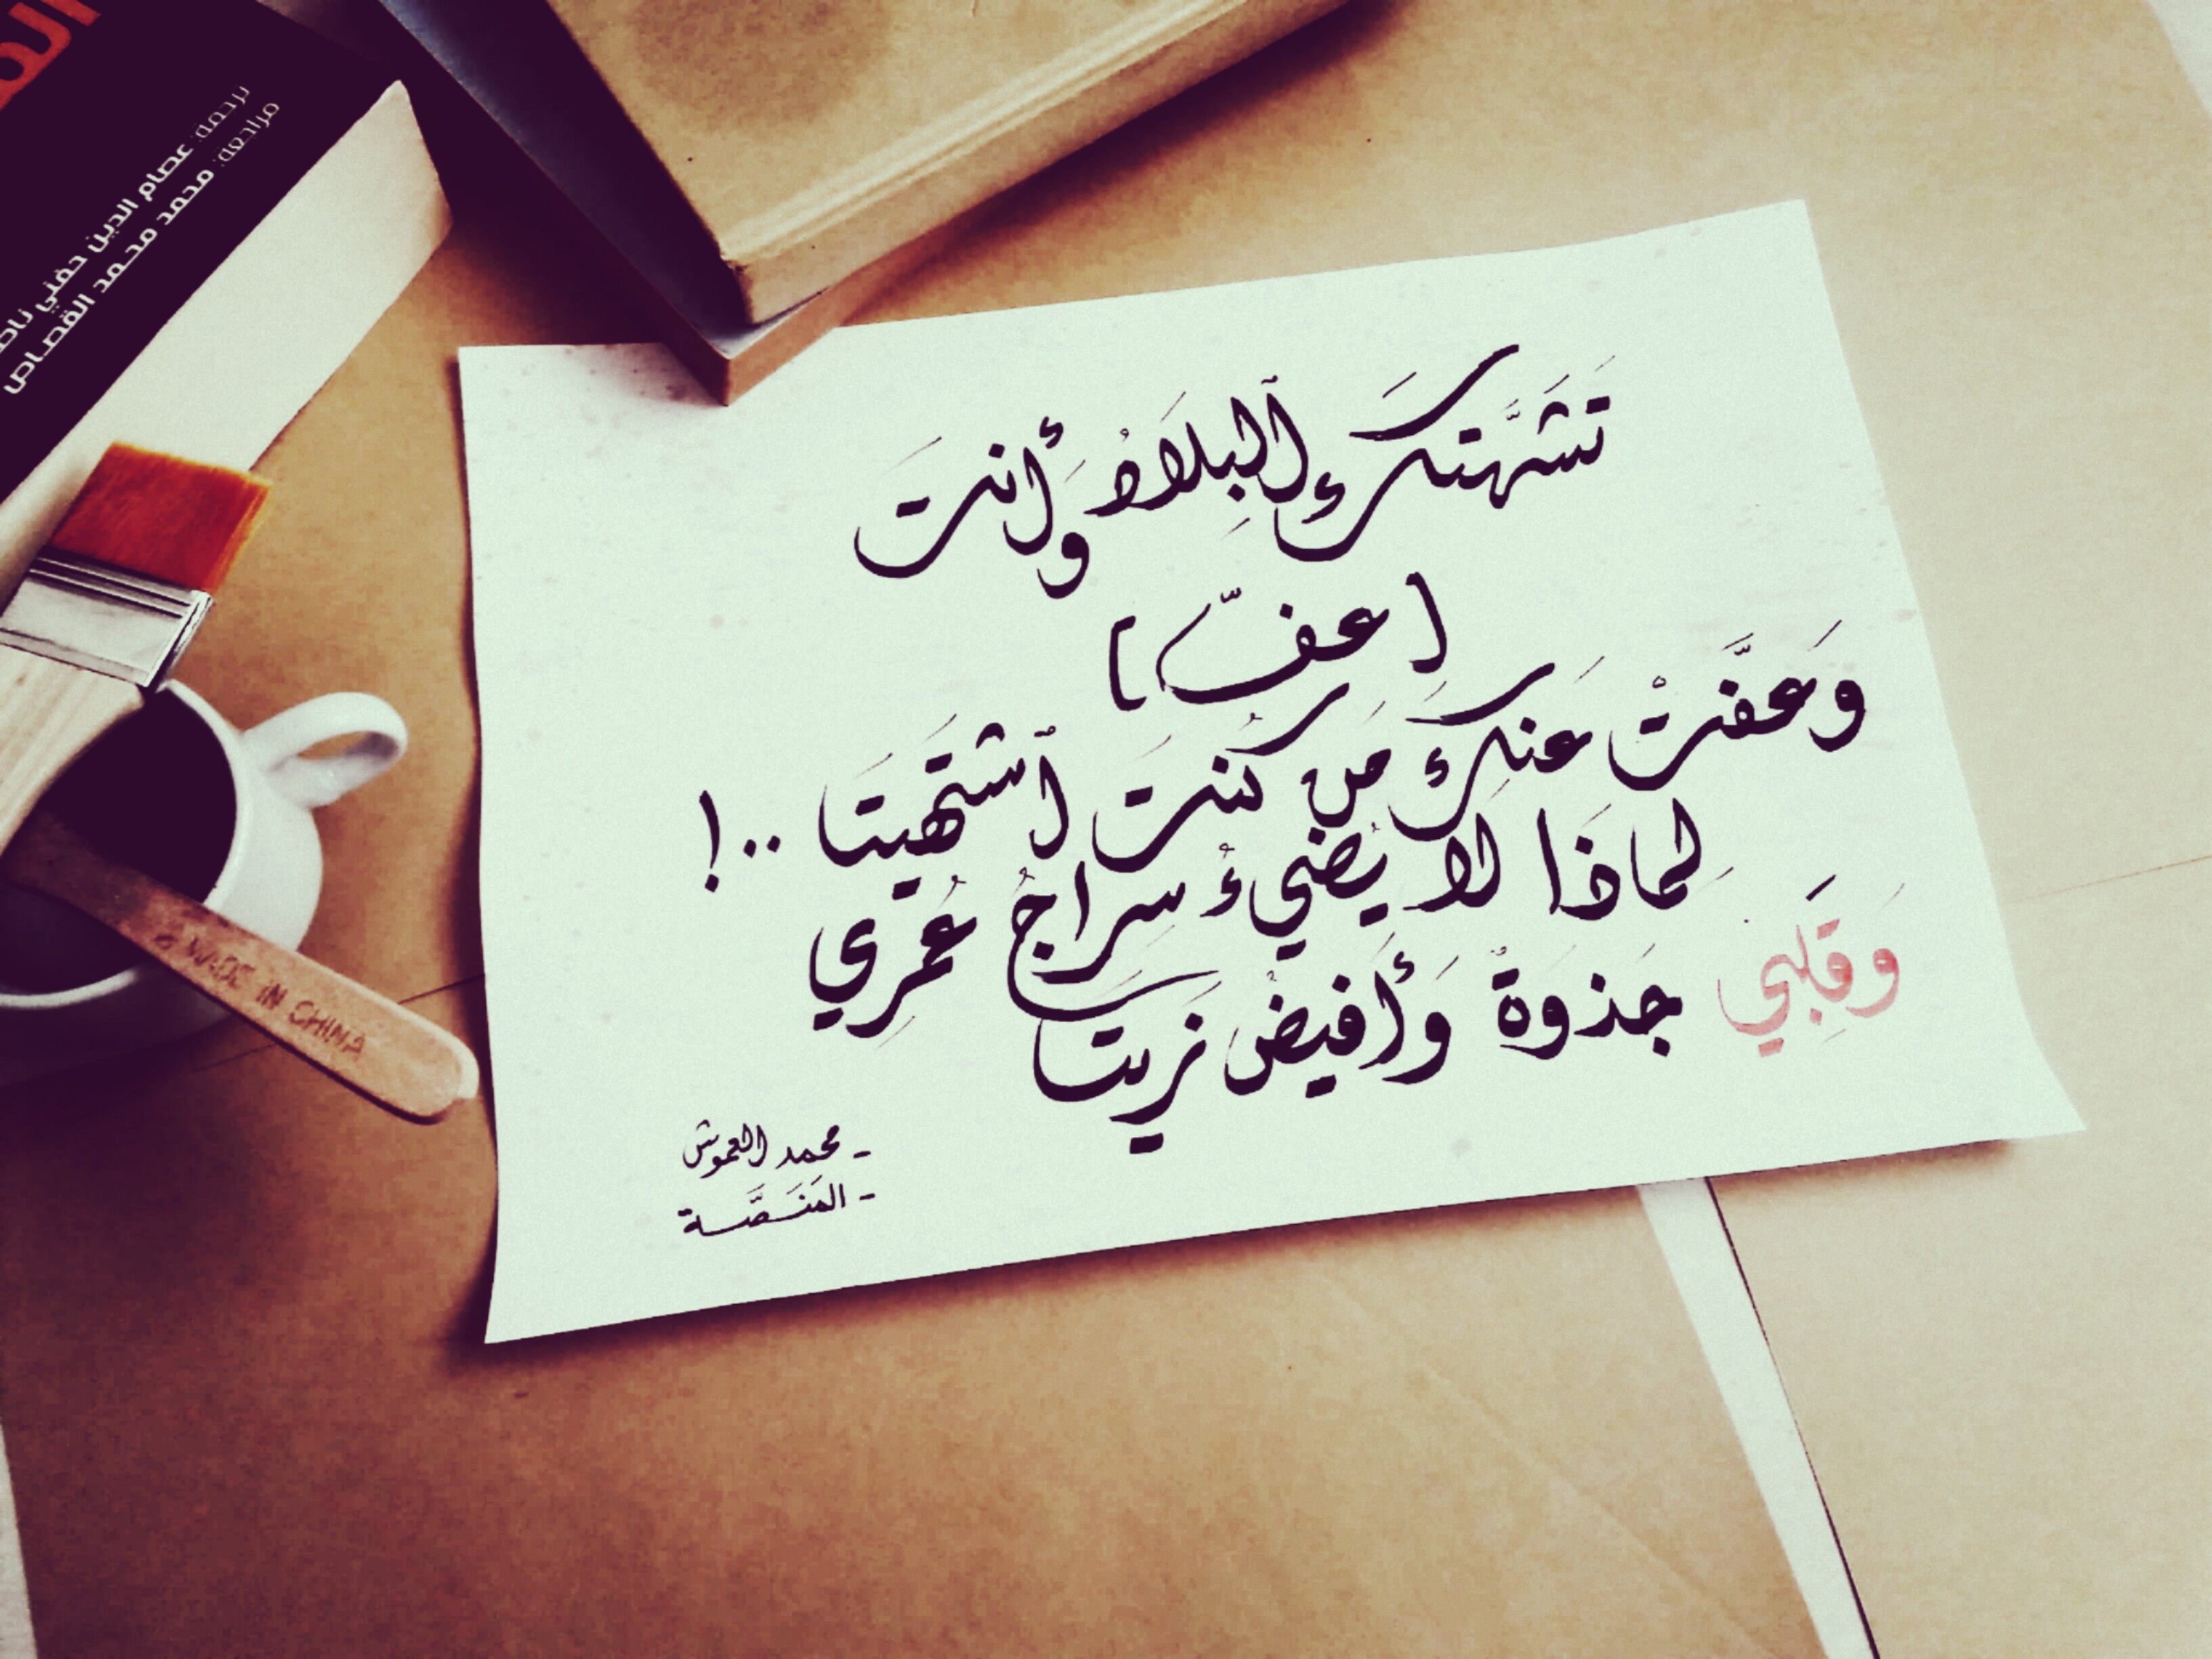 ترجمة: عصام الدين حفني
مراجعة: محمد محمد القصاص
تَشَهَّتكَ ٱلبِلَادُ وَأَنتَ
(عفّ)
وَعَفَّتْ عَنكَ مَن كُنتَ ٱشتَهَيتَا ..!
لِماذَا لَا يُضيءُ سِراجُ عُمرِي
وَقَلبِي جَذوَةٌ وَأَفيضُ زَيتَا
- محمد العموش
- المَنَصَّة
MADE IN CHINA